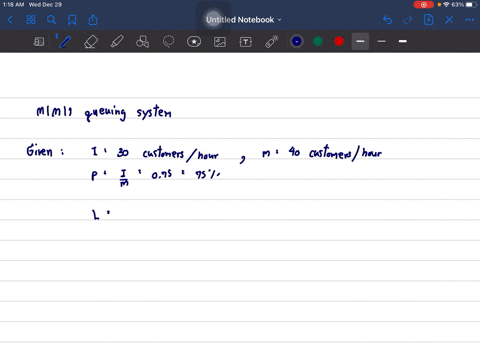 1:18 AM Wed Dec 29
63%
Untitled Notebook
M|M|1 queuing system
Given : I : 30 customers/hour , m : 40 customers/hour
P : I/m : 0.75 : 75%
L :